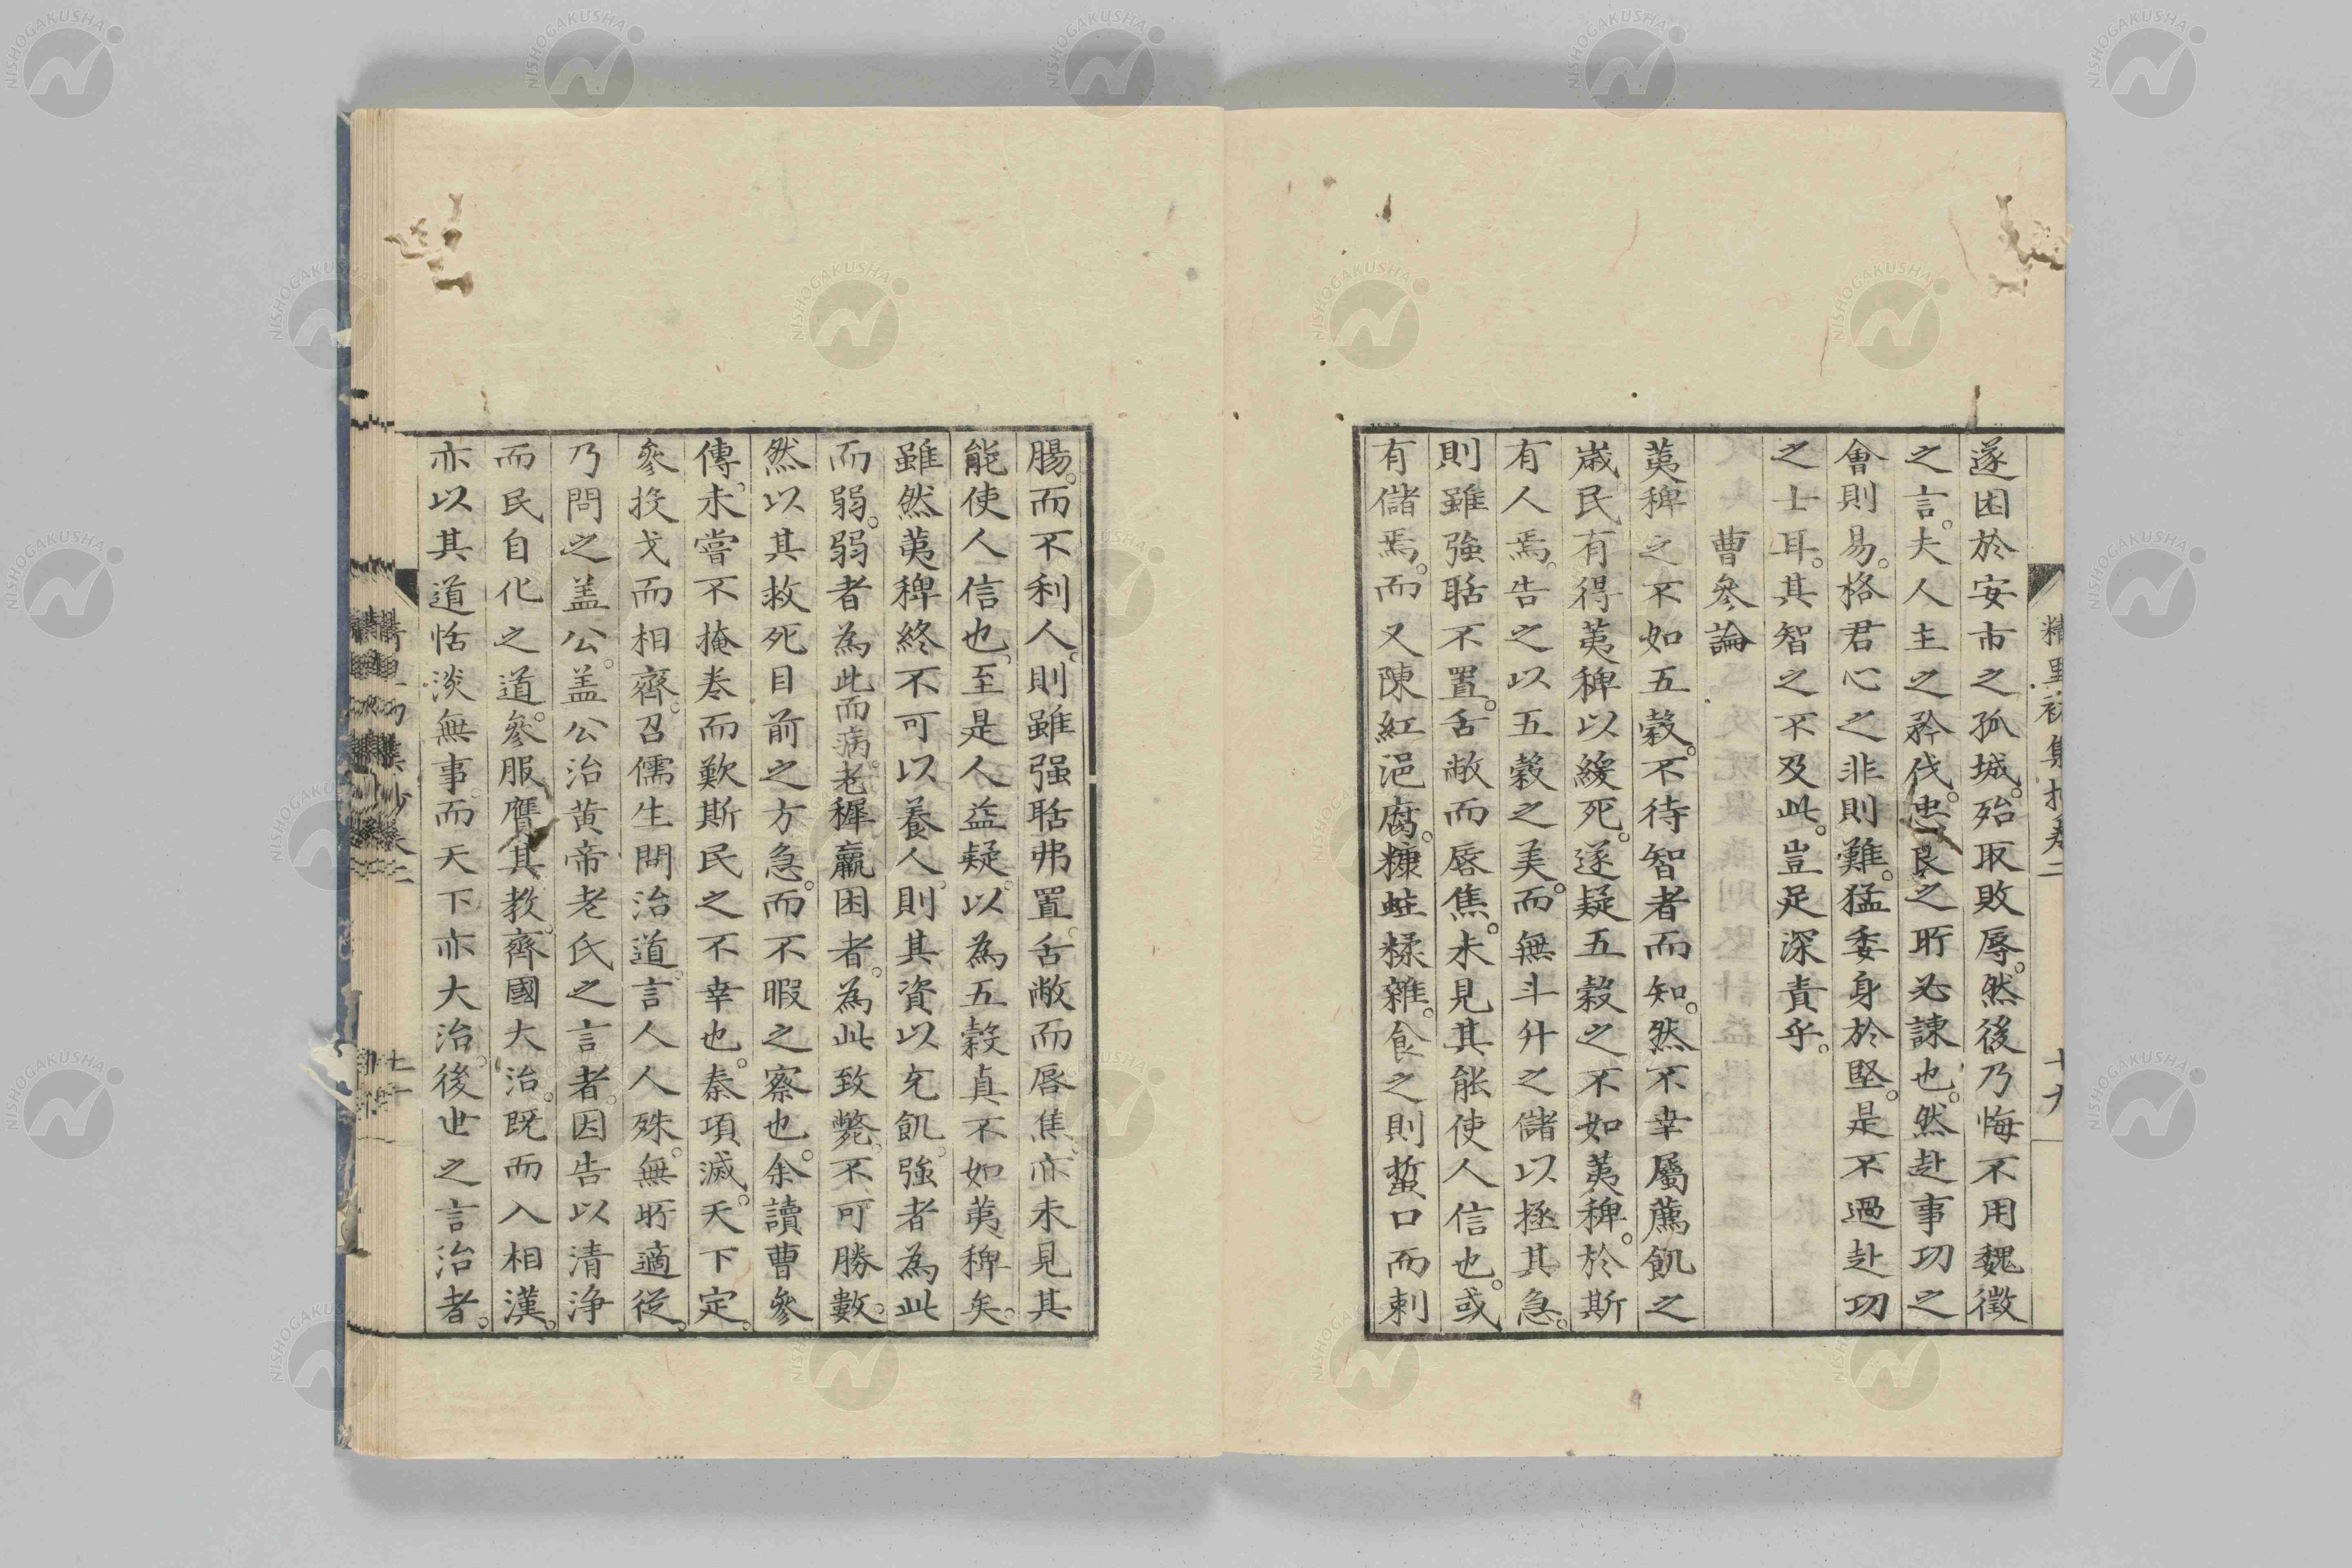 精里初集抄卷二 十九
遂困於安市之孤城。殆取敗辱。然後乃悔不用魏徵
之言。夫人主之矜伐。忠良之所必諫也。然赴事功之
會則易。格君心之非則難。猛委身於堅。是不過赴功
之士耳。其智之不及此。豈足深責乎。
曹參論
荑稗之不如五穀。不待智者而知。然不幸屬薦飢之
歲民有得荑稗以緩死。遂疑五穀之不如荑稗。於斯
有人焉。告之以五穀之美。而無斗升之儲以拯其急。
則雖強聒不置。舌敝而唇焦。未見其能使人信也。或
有儲焉。而又陳紅浥腐。糠蛀糅雜。食之則蜇口而刺
腸。而不利人。則雖强聒弗置。舌敝而唇焦。亦未見其
能使人信也。至是人益疑。以為五穀真不如荑稗矣。
雖然荑稗終不可以養人。則其資以充飢。強者為此
而弱。弱者為此而病。老穉羸困者。為此致斃。不可勝數。
然以其救死目前之方急。而不暇之察也。余讀曹參
傳。未嘗不掩卷而歎斯民之不幸也。秦項滅。天下定。
參投戈而相齊。召儒生問治道。言人人殊。無所適從。
乃問之盖公。盖公治黄帝老氏之言者。因告以清浄
而民自化之道。參服膺其教。齊國大治。既而入相漢。
亦以其道恬淡無事。而天下亦大治。後世之言治者。